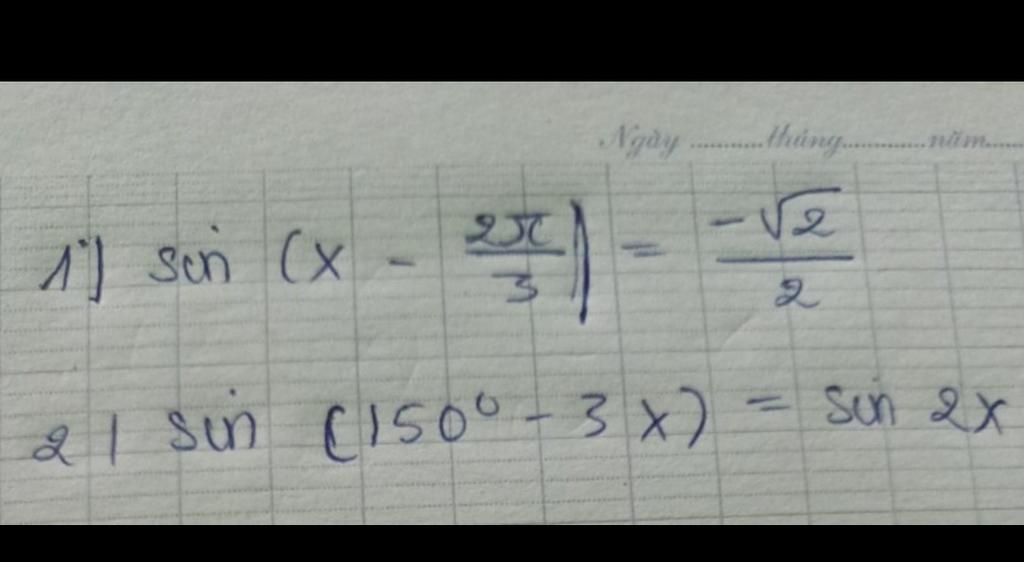 Ngày ...........tháng............năm......
1) sin (x - 2π/3) = -√2/2
2) sin (150° - 3x) = sin 2x